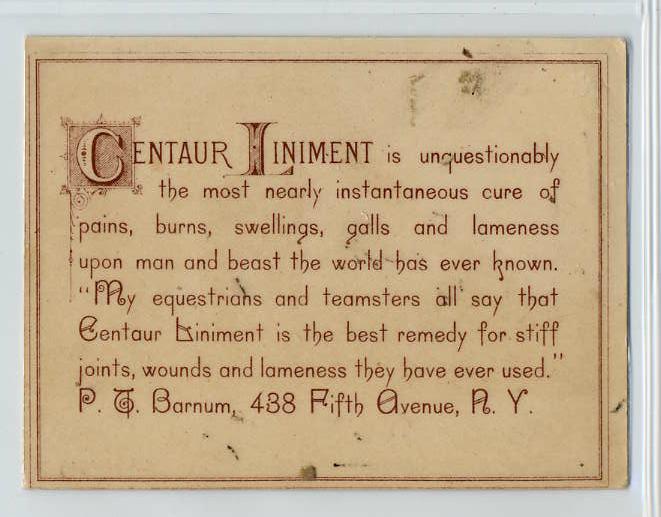 CENTAUR LINIMENT is unquestionably
the most nearly instantaneous cure of
pains, burns, swellings, galls and lameness
upon man and beast the world has ever known.
"My equestrians and teamsters all say that
Centaur Liniment is the best remedy for stiff
joints, wounds and lameness they have ever used."
P. T. Barnum, 438 Fifth Avenue, N. Y.